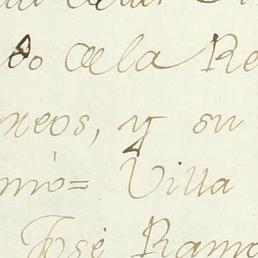 do de la Re
neos, y su
mo= Villa
José Ramo